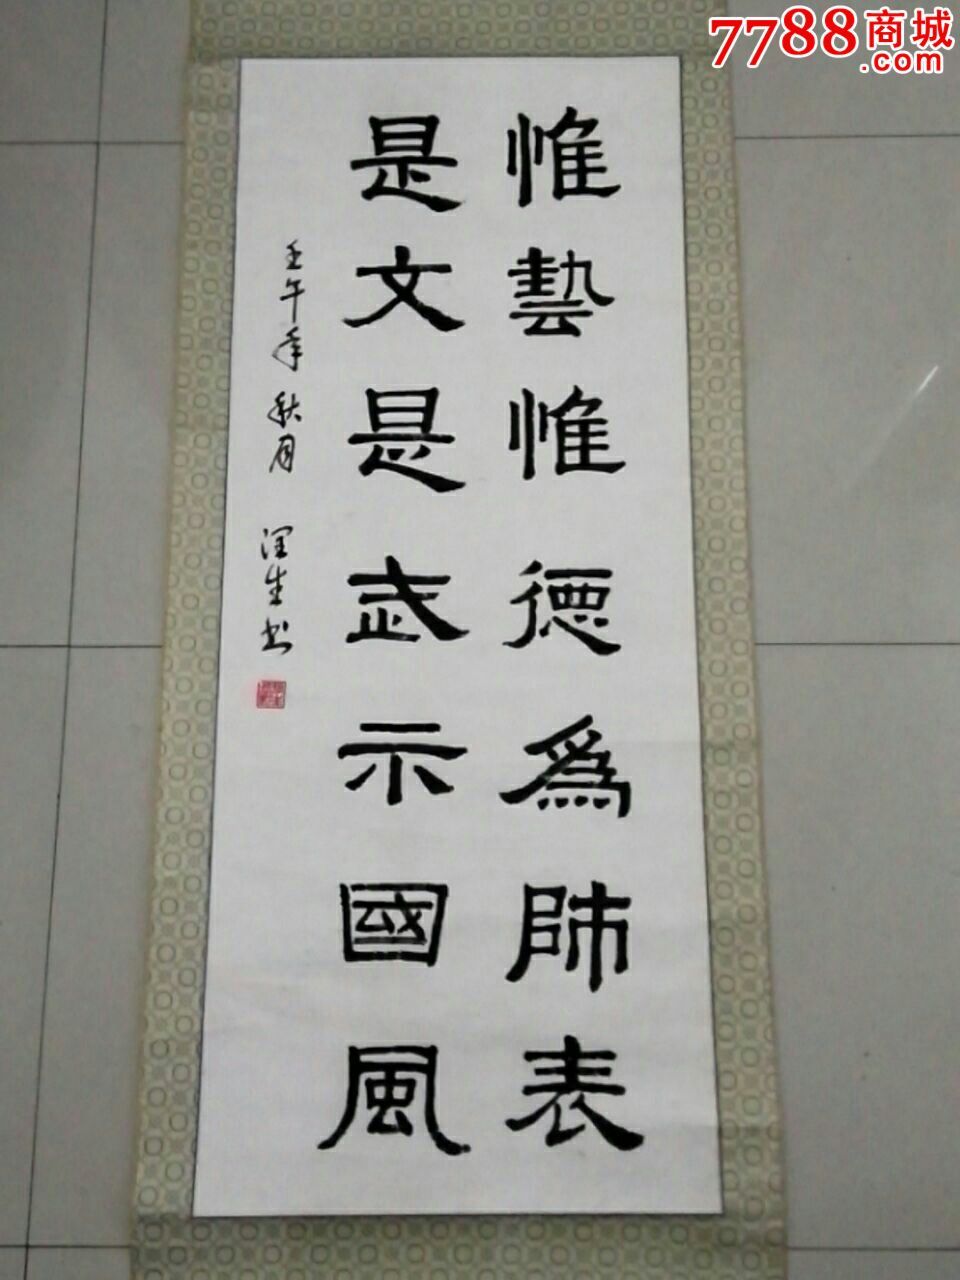 惟藝惟德為師表
是文是武示國風
壬午年秋月 润生书
7788商城
.com